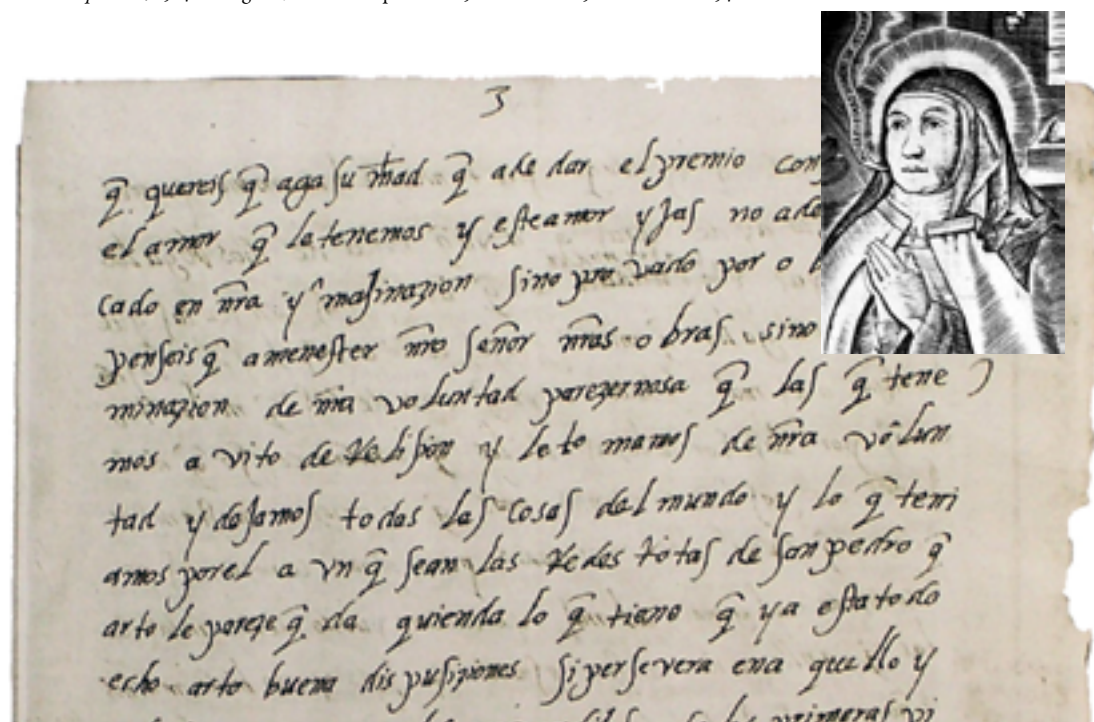 3
q̃ quereis q̃ aga su mad q̃ a de dar el premio con
el amor q̃ le tenemos y este amor yjas no a de
cado en nr̃a ymajinazion sino provado por o
penseis q̃ a menester nr̃o señor nr̃as obras sino
minazion de nr̃a voluntad parezernos a q̃ las q̃ tene
mos avito de Relijion y le tomamos de nr̃a volun
tad y dejamos todas las cosas del mundo y lo q̃ teni
amos por el avnq̃ sean las Redes Rotas de san pedro q̃
arto le pareze q̃ da quien da lo q̃ tiene q̃ ya esta todo
echo arto buena dispusiziones si persevera en aquello y
primeras